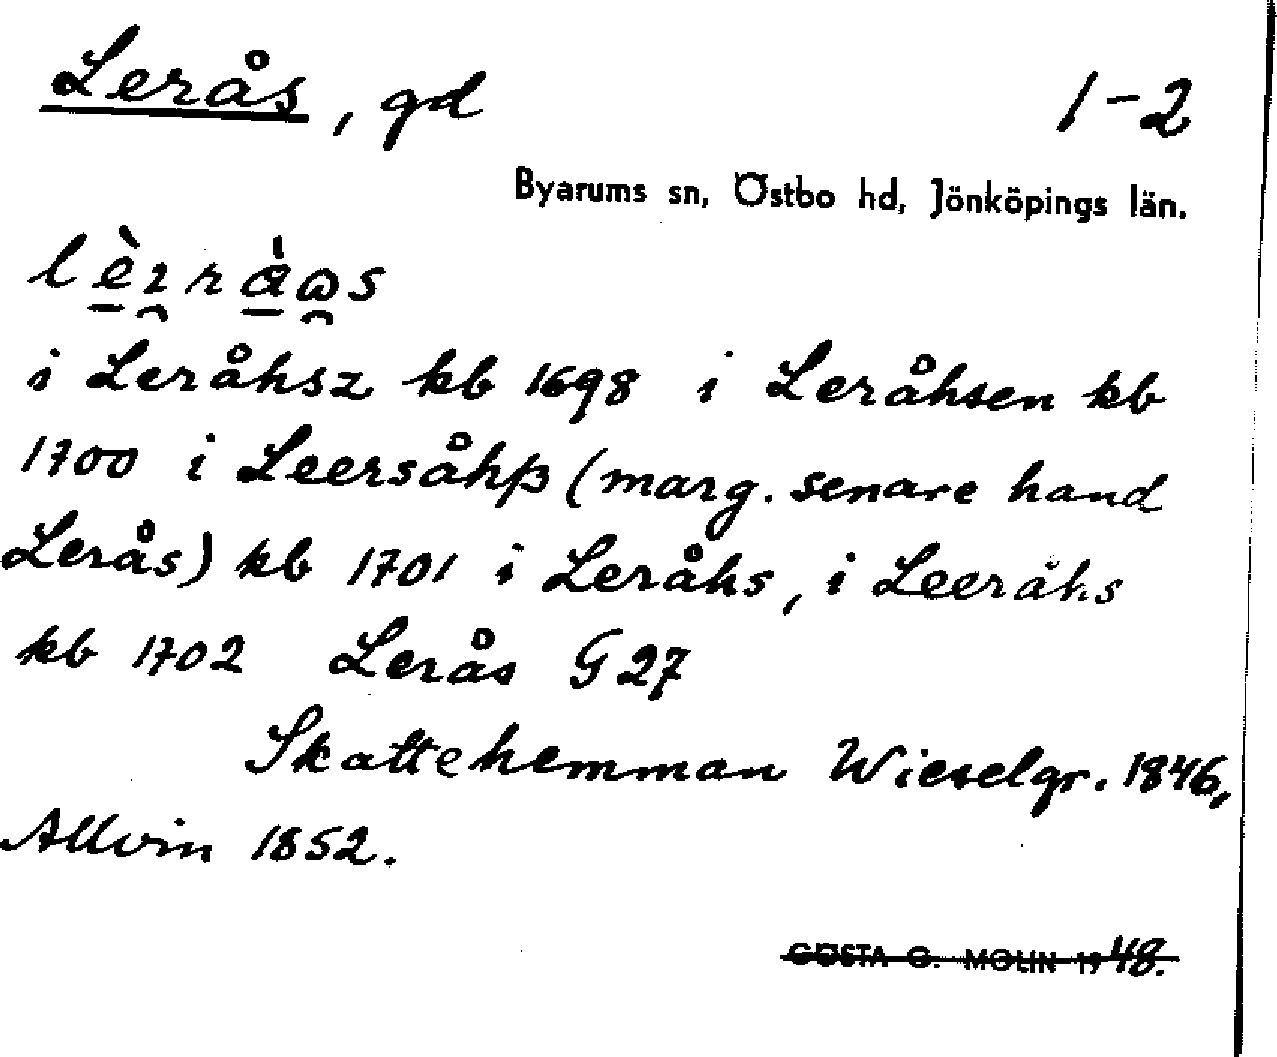 Lerås, gd 1-2
Byarums sn, Östbo hd, Jönköpings län.
i Leråhsz kb 1698 i Leråhsen kb
1700 i Leersåhß (marg. senare hand
Lerås) kb 1701 i Leråhs, i Leeråhs
kb 1702 Lerås G 27
Skattehemman Wieselgr. 1846,
Allvin 1852.
GÖSTA G. MOLIN 1948.